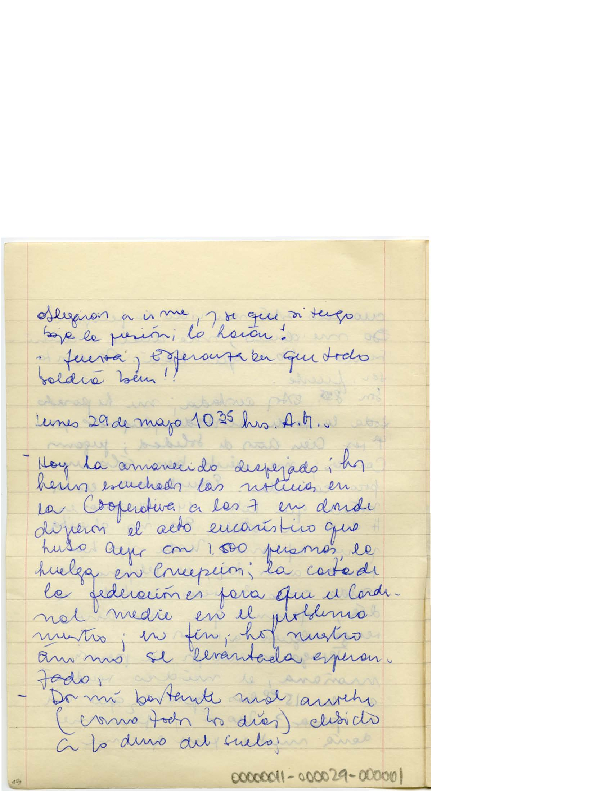 obligaran a irme, y se que si tengo
baja la presión; lo harán!
- fuerza, esperanza en que todo
saldrá bien!!
Lunes 29 de mayo 10 35 hrs. A.M..
- Hoy ha amanecido despejado; hoy
hemos escuchado las noticias en
la Cooperativa a las 7 en donde
dijeron el acto eucarístico que
hubo ayer con 1.500 personas, la
huelga en Concepción; la carta de
la federaciones para que el Carde-
nal medie en el problema
nuestro; en fin, hoy nuestro
ánimo se levantada esperan-
zado,
- Dormí bastante mal anoche
(como todos los días) debido
a lo duro del suelo;
00000011-000029-000001